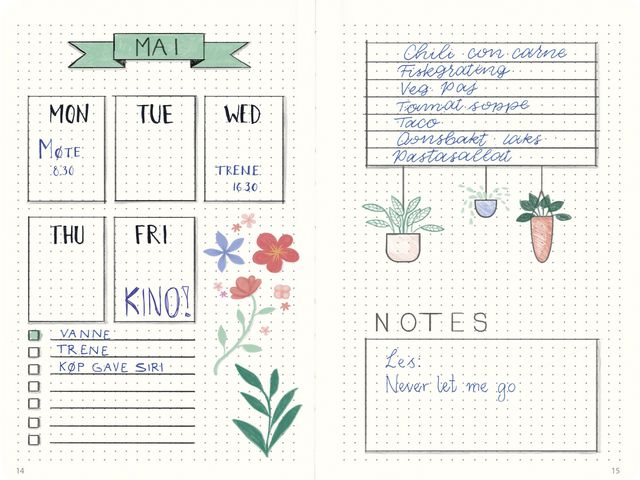 MAI
MON
TUE
WED
MØTE
8.30
TRENE
16.30
THU
FRI
KINO!
VANNE
TRENE
KØP GAVE SIRI
14
Chili con carne
Fiskegrateng
Veg. Pas
Tomat soppe
Taco
Ovnsbakt laks
Pastasallat
NOTES
Les:
Never let me go
15